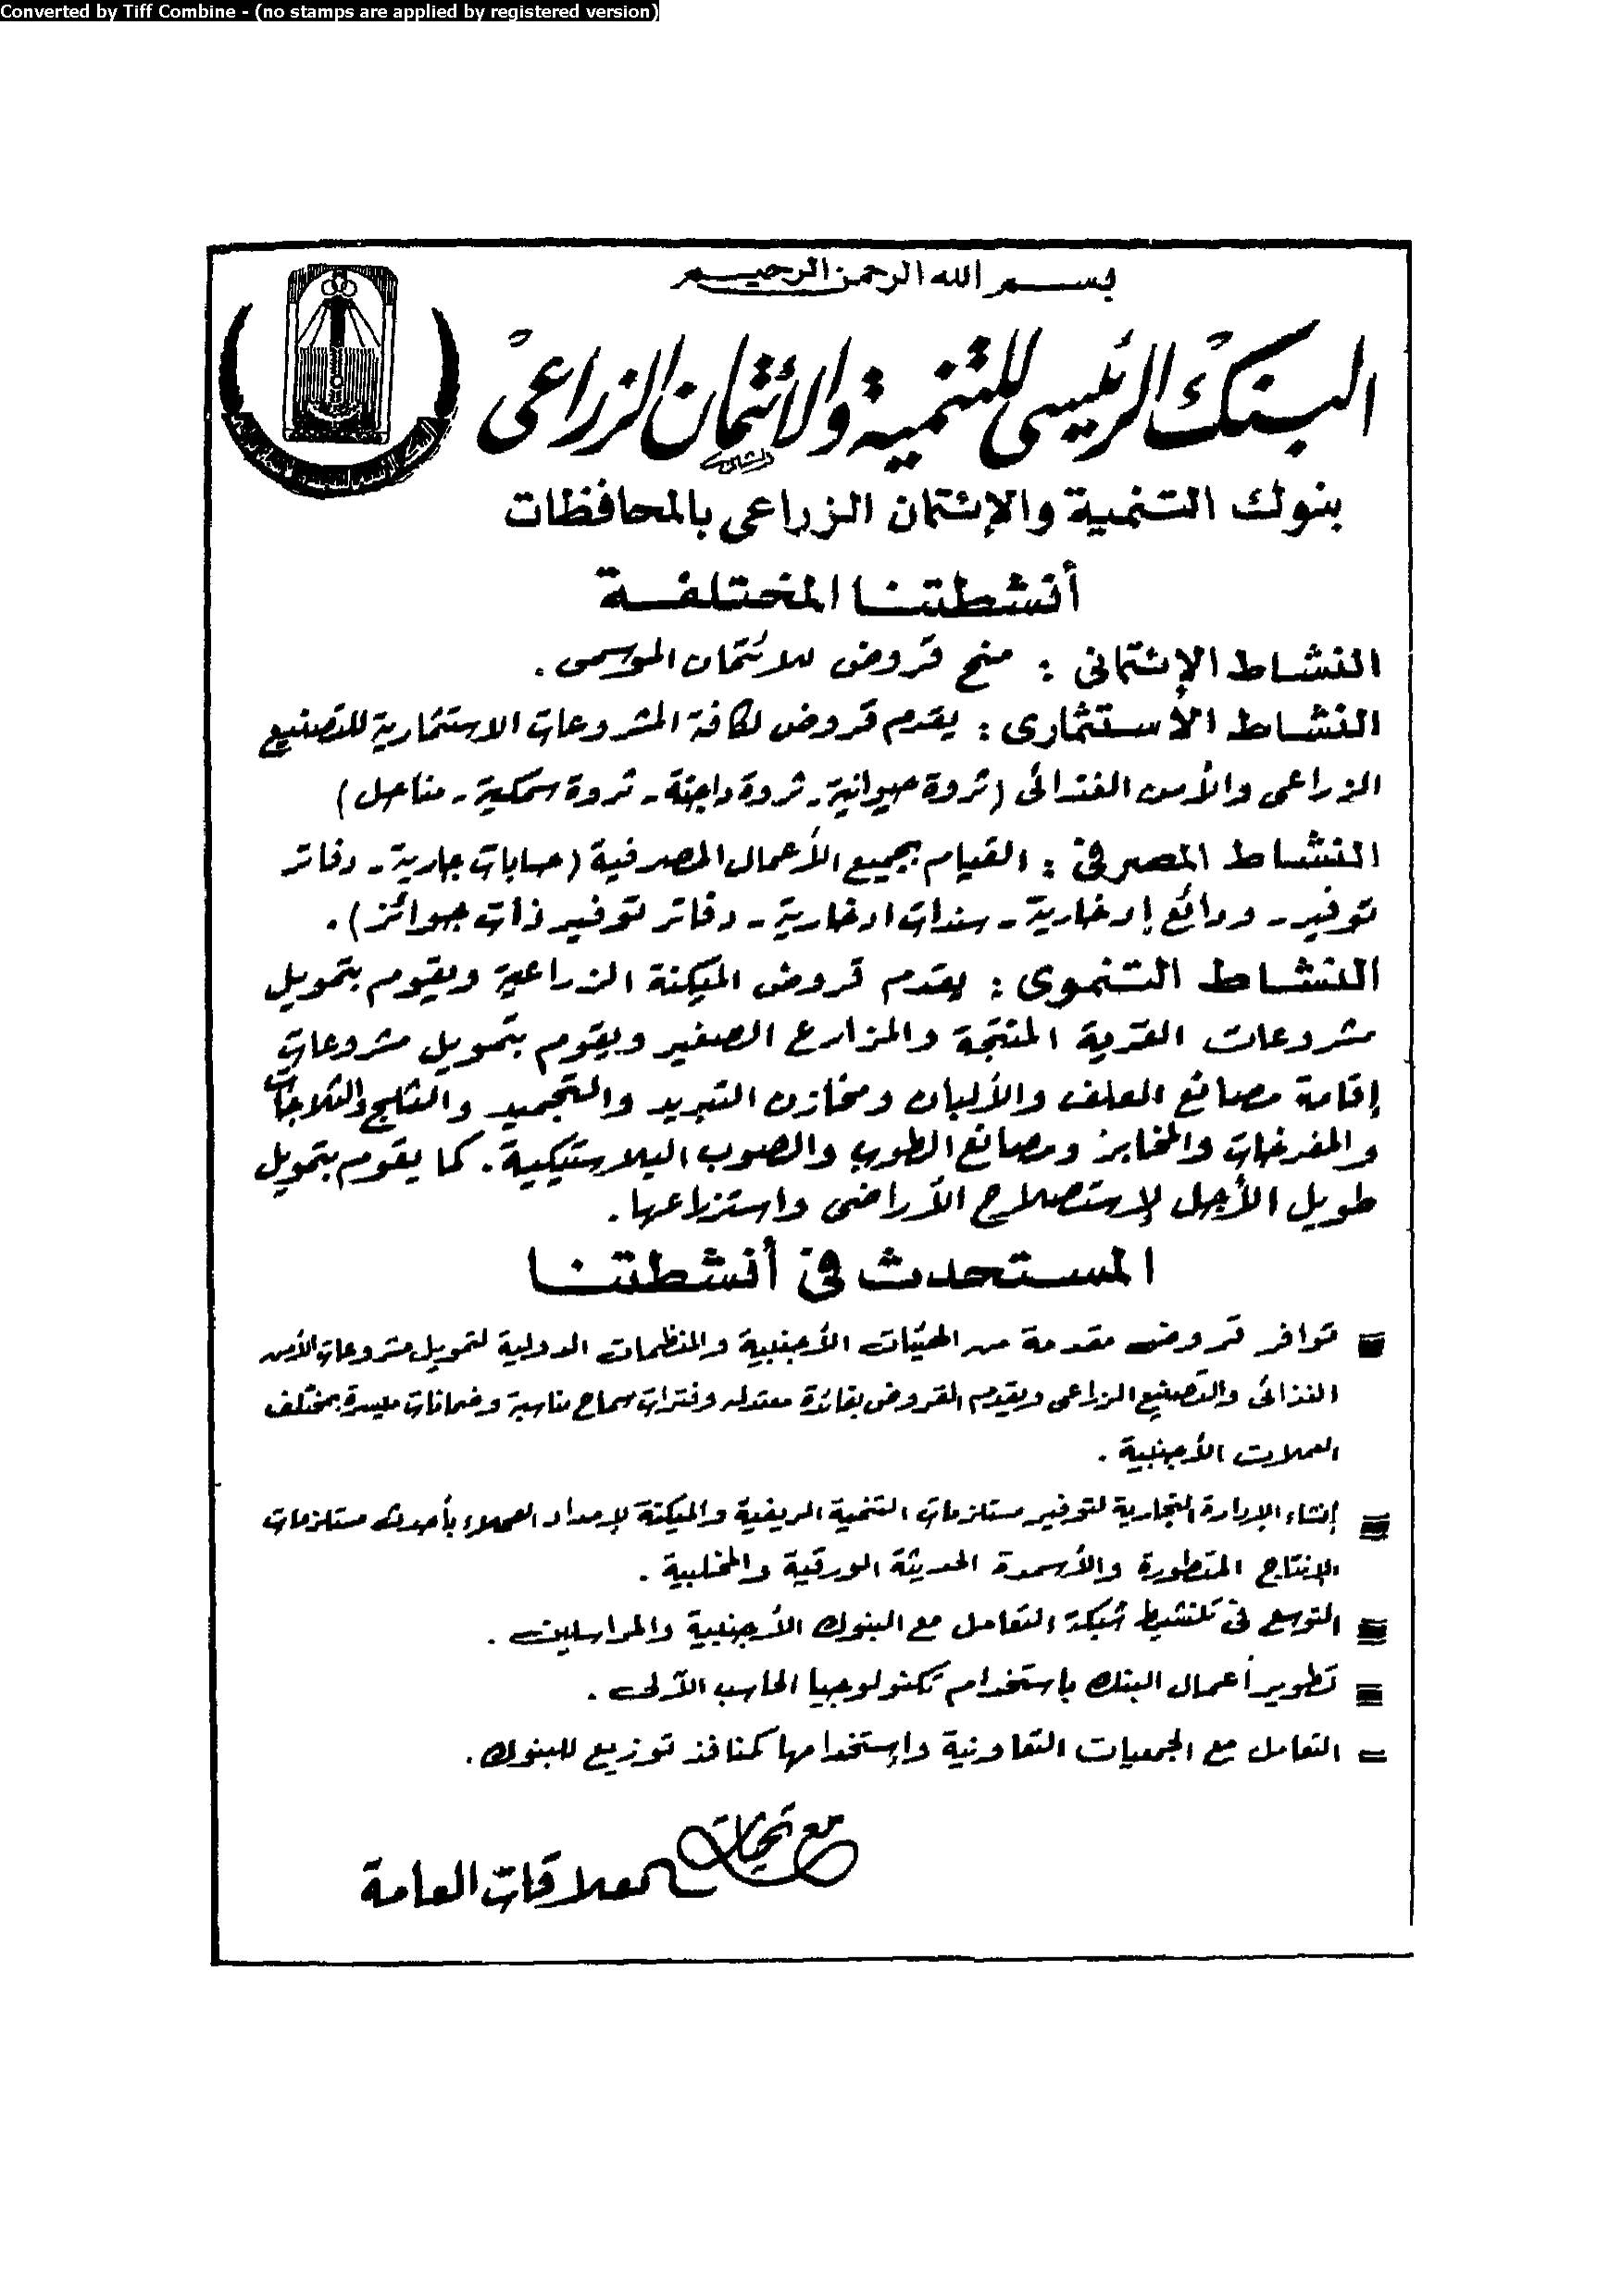 Converted by Tiff Combine - (no stamps are applied by registered version)
بسم الله الرحمن الرحيم
البنك الرئيسى للتنمية والائتمان الزراعى
بنوك التنمية والإئتمان الزراعى بالمحافظات
أنشطتنا المختلفة
النشاط الإئتمانى : منح قروض للائتمان الموسمى .
النشاط الأستثمارى : يقدم قروض لكافة المشروعات الاستثمارية للتصنيع
الزراعى والأمن الغذائى (ثروة حيوانية - ثروة داجنة - ثروة سمكية - مناحل)
النشاط المصرفى : القيام بجميع الأعمال المصرفية (حسابات جارية - دفاتر
توفير - ودائع إدخارية - سندات ادخارية - دفاتر توفير ذات جوائز) .
النشاط التنموى : يقدم قروض الميكنة الزراعية ويقوم بتمويل
مشروعات القرية المنتجة والمزارع الصغير ويقوم بتمويل مشروعات
إقامة مصانع العلف والألبان ومخازن التبريد والتجميد والثلج والثلاجات
والمفرخات والمخابز ومصانع الطوب والصوب البلاستيكية . كما يقوم بتمويل
طويل الأجل لإستصلاح الأراضى واستزراعها .
المستحدث فى أنشطتنا
توافر قروض مقدمة من الهيئات الأجنبية والمنظمات الدولية لتمويل مشروعات الأمن
الغذائى والتصنيع الزراعى ويقدم القروض بفائدة معتدله وفترات سماح مناسبة وضمانات ميسرة بمختلف
العملات الأجنبية .
إنشاء الإدارة التجارية لتوفير مستلزمات التنمية الريفية والميكنة لإمداد العملاء بأحدث مستلزمات
الإنتاج المتطورة والأسمدة الحديثة الورقية والمخلبية .
التوسع فى تنشيط شبكة التعامل مع البنوك الأجنبية والمراسلين .
تطوير أعمال البنك باستخدام تكنولوجيا الحاسب الآلى .
التعامل مع الجمعيات التعاونية وإستخدامها كمنافذ توزيع للبنوك .
مع تحيات
العلاقات العامة